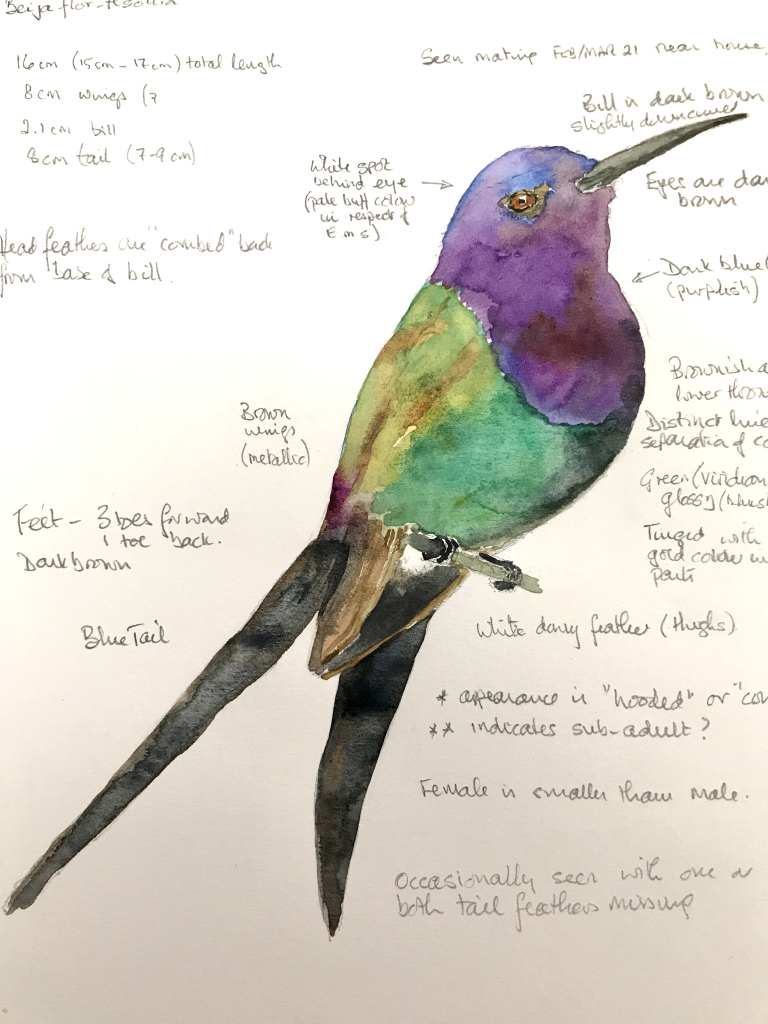 Beija flor-tesoura
16cm (15cm - 17cm) total length
8cm wings (7
2.1cm bill
8cm tail (7-9cm)
Seen mating FEB/MAR 21 near house.
Bill is dark brown
slightly downcurved
White spot
behind eye
(pale buff colour
in respect of
E m s)
Eyes are dar
brown
Head feathers are "combed" back
from base of bill.
Dark blue(
(purplish)
Brownish a
lower thro
Brown
wings
(metallic)
Distinct line
separation of co
Green (viridian
glossy (blueis
Feet - 3 toes forward
1 toe back.
Dark brown
Tinged with
gold colour in
parts
Blue Tail
White downy feather (thighs)
* appearance is "hooded" or "co
** indicates sub-adult?
Female is smaller than male.
Occasionally seen with one or
both tail feathers missing